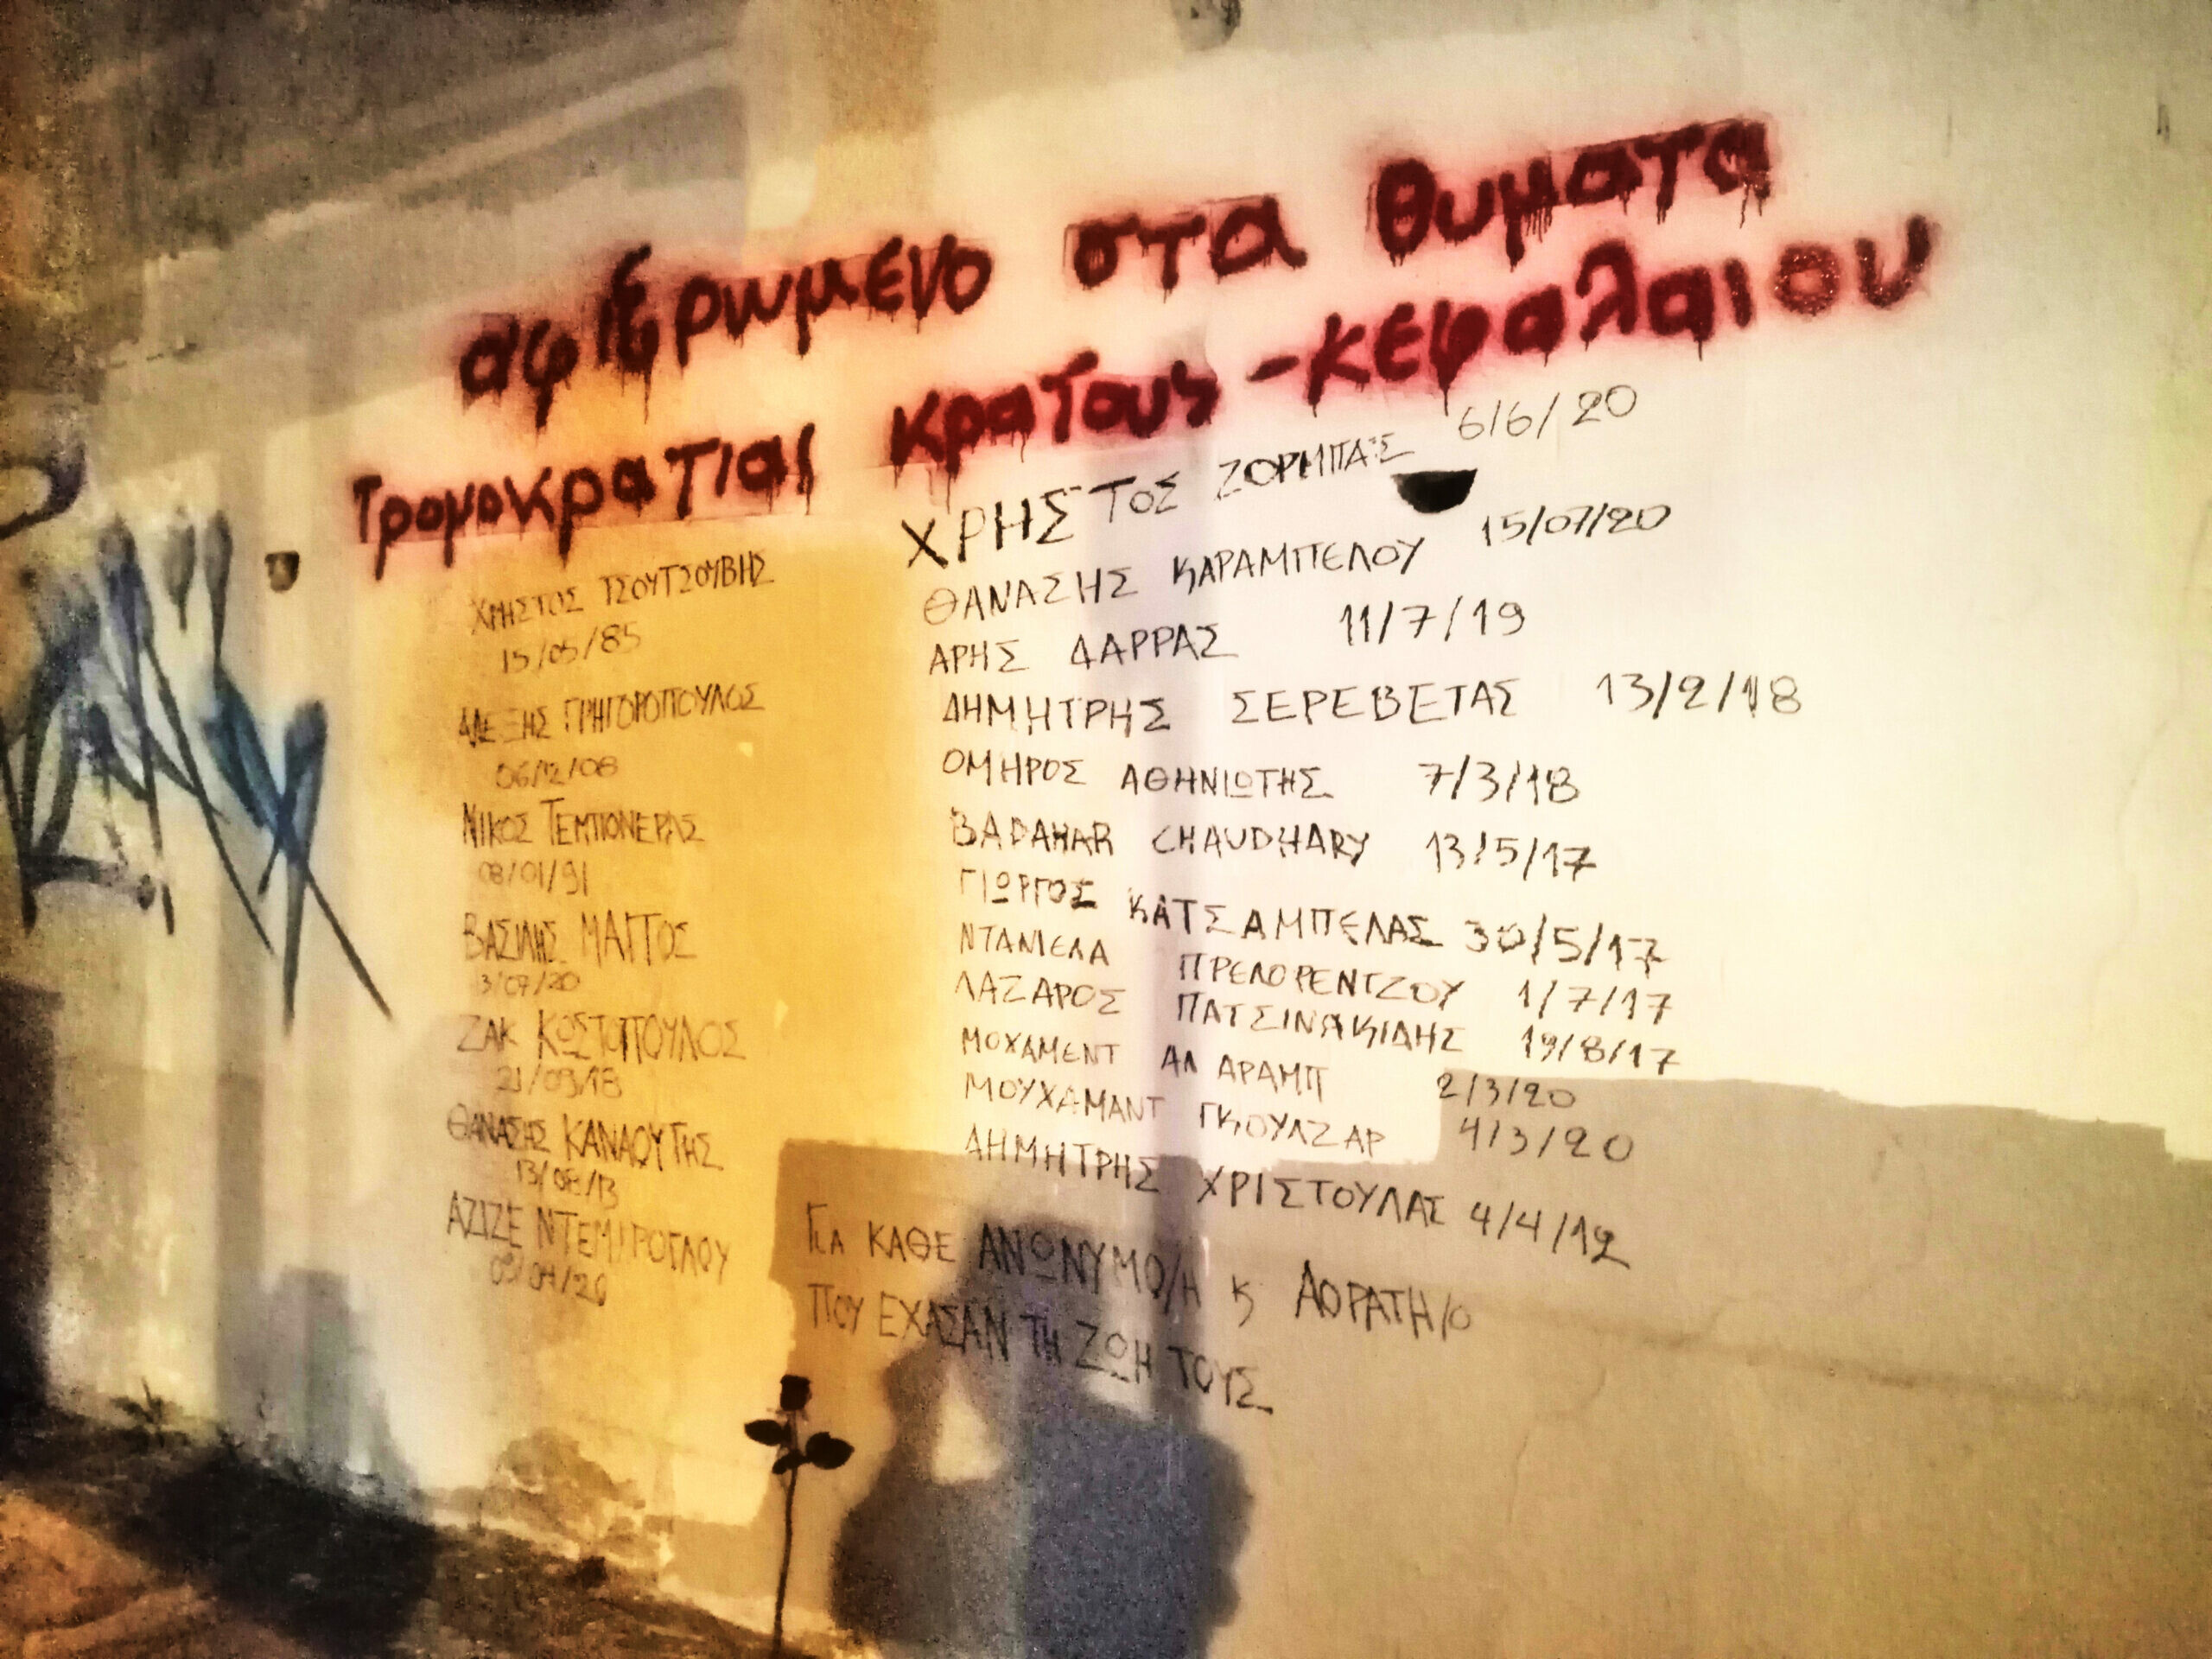 αφιερωμενο στα θυματα
τρομοκρατιας κρατους - κεφαλαιου
ΧΡΗΣΤΟΣ ΤΣΟΥΤΣΟΥΒΗΣ
15/05/85
ΑΛΕΞΗΣ ΓΡΗΓΟΡΟΠΟΥΛΟΣ
06/12/08
ΝΙΚΟΣ ΤΕΜΠΟΝΕΡΑΣ
08/01/91
ΒΑΣΙΛΗΣ ΜΑΓΓΟΣ
3/07/20
ΖΑΚ ΚΩΣΤΟΠΟΥΛΟΣ
21/09/18
ΘΑΝΑΣΗΣ ΚΑΝΑΟΥΤΗΣ
13/08/13
ΑΖΙΖΕ ΝΤΕΜΙΡΟΓΛΟΥ
09/04/20
ΧΡΗΣΤΟΣ ΖΟΡΜΠΑΣ 6/6/20
ΘΑΝΑΣΗΣ ΚΑΡΑΜΠΕΛΟΥ 15/07/20
ΑΡΗΣ ΔΑΡΡΑΣ 11/7/19
ΔΗΜΗΤΡΗΣ ΣΕΡΕΒΕΤΑΣ 13/2/18
ΟΜΗΡΟΣ ΑΘΗΝΙΩΤΗΣ 7/3/18
BADAHAR CHAUDHARY 13/5/17
ΓΙΩΡΓΟΣ ΚΑΤΣΑΜΠΕΛΑΣ 30/5/17
ΝΤΑΝΙΕΛΑ ΠΡΕΛΟΡΕΝΤΖΟΥ 1/7/17
ΛΑΖΑΡΟΣ ΠΑΤΣΙΝΑΚΙΔΗΣ 19/8/17
ΜΟΧΑΜΕΝΤ ΑΛ ΑΡΑΜΠ 2/3/20
ΜΟΥΧΑΜΑΝΤ ΓΚΟΥΛΖΑΡ 4/3/20
ΔΗΜΗΤΡΗΣ ΧΡΙΣΤΟΥΛΑΣ 4/4/12
ΓΙΑ ΚΑΘΕ ΑΝΩΝΥΜΟ/Η κ ΑΟΡΑΤΗ/Ο
ΠΟΥ ΕΧΑΣΑΝ ΤΗ ΖΩΗ ΤΟΥΣ